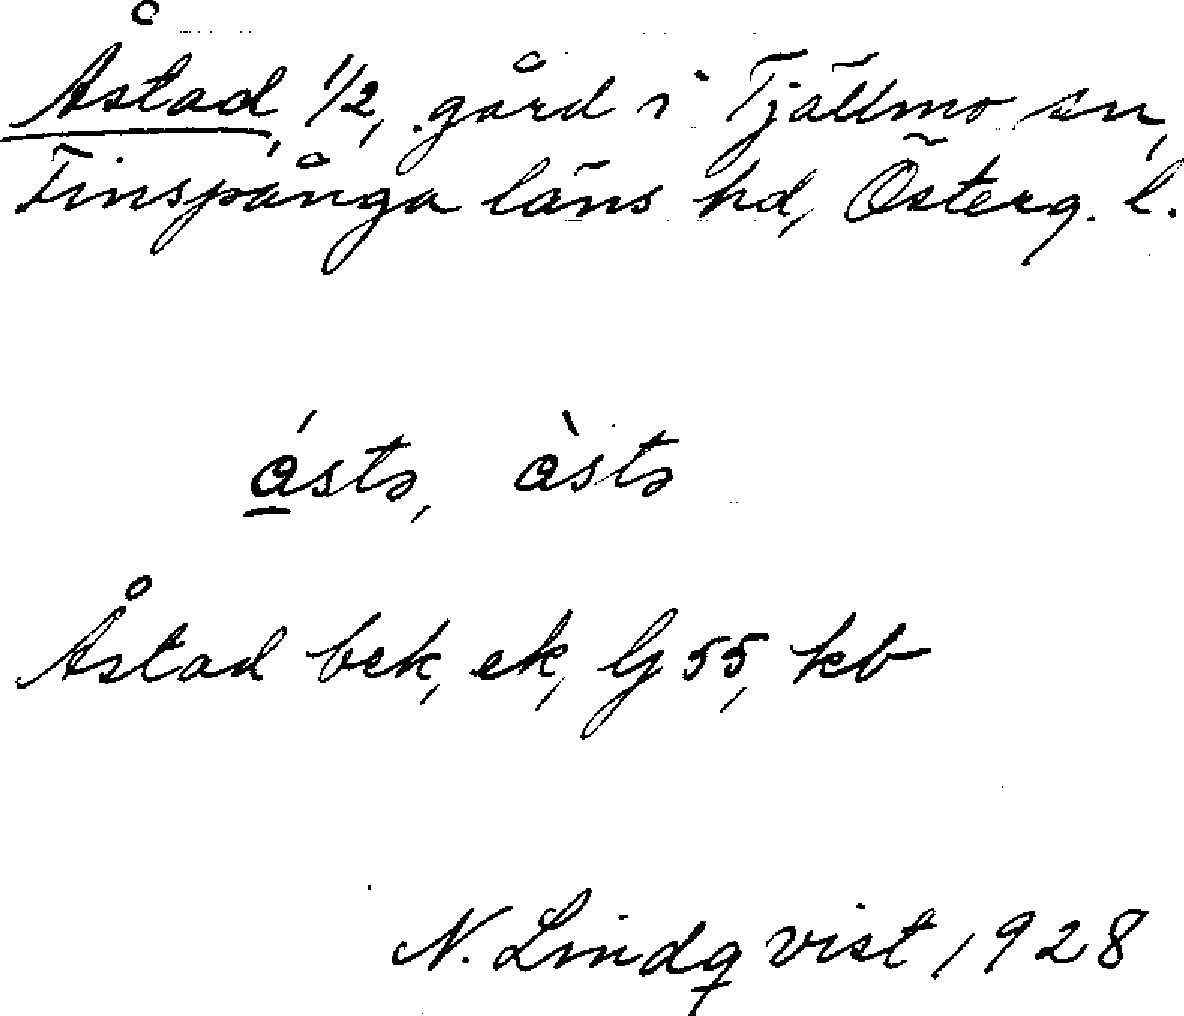 Åstad, 1/2, gård i Tjällmo sn,
Finspånga läns hd, Österg. l.
ástə, àstə
Åstad bek, ek, G 55, kb
N. Lindqvist 1928